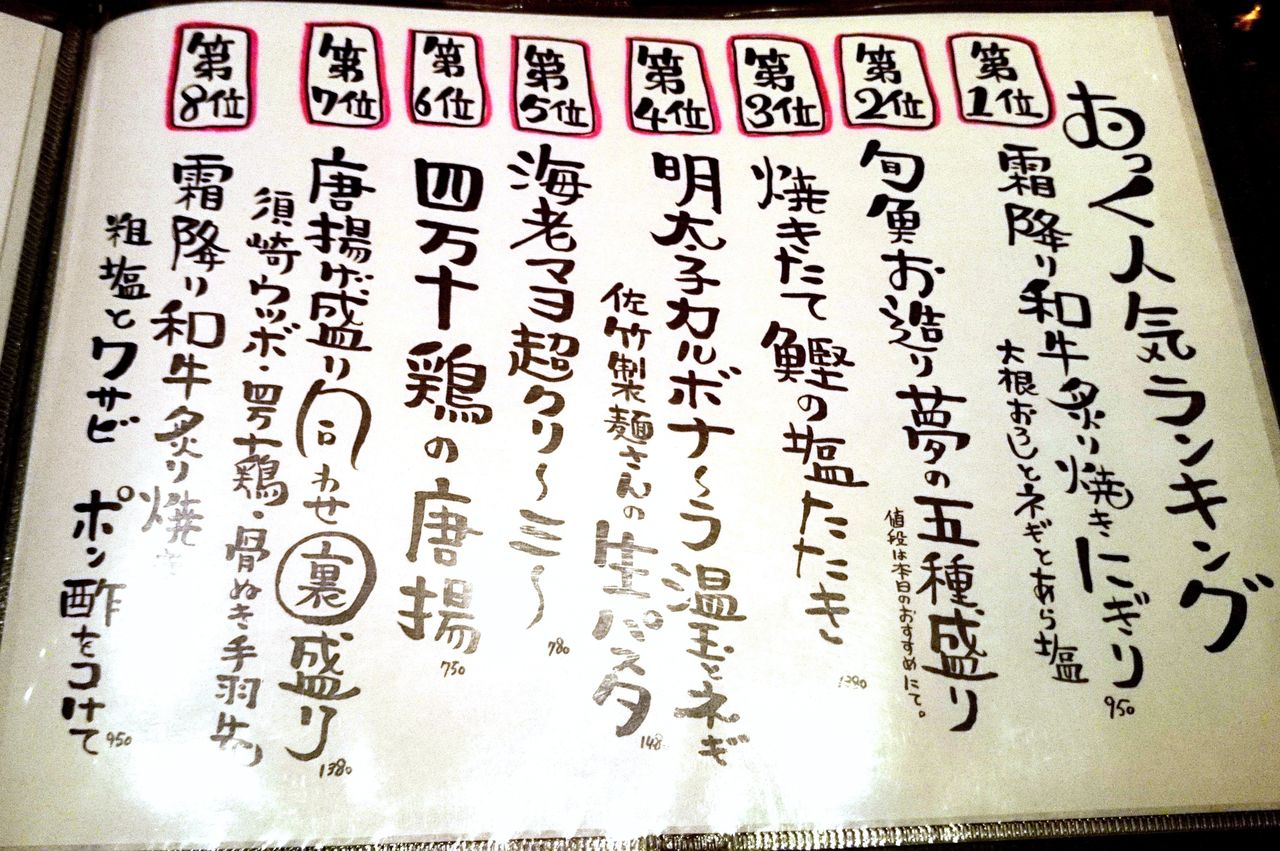 おっく人気ランキング
第1位
霜降り和牛炙り焼きにぎり
大根おろしとネギとあら塩
950
第2位
旬魚お造り夢の五種盛り
値段は本日のおすすめにて。
第3位
焼きたて鰹の塩たたき
1380
第4位
明太子カルボナ〜ラ温玉とネギ
佐竹製麺さんの生パスタ
148
第5位
海老マヨ超クリ〜ミ〜
780
第6位
四万十鶏の唐揚
750
第7位
唐揚げ盛り合わせ裏盛り
須崎ウツボ・四万十鶏・骨ぬき手羽先
1380
第8位
霜降り和牛炙り焼き
粗塩とワサビ ポン酢をつけて
950